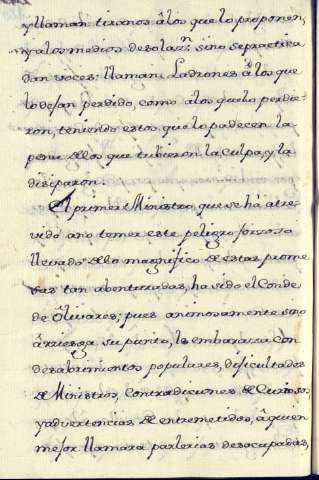 y llaman tiranos â los que lo proponen,
y a los medios desolazn. si no se practica
dan voces: llaman Ladrones â los que
lo dejan perdido, como a los que lo perdie-
ron, teniendo estos, que lo padecen la
pena de los que tubieron la Culpa, y la
disiparon.
Al primer Ministro que se há atre-
vido a no temer este peligro forzoso
llevado de lo magnifico de estas prome
sas tan abenturadas, ha sido el Conde
de Olivares; pues animosamente sino
ârriesga su punto, le embaraza con
desabrimientos populares, dificultades
de Ministros, Contradiciones de Curiosos,
y advertencias de entremetidos, â quien
mejor llamara parlerias desocupadas,